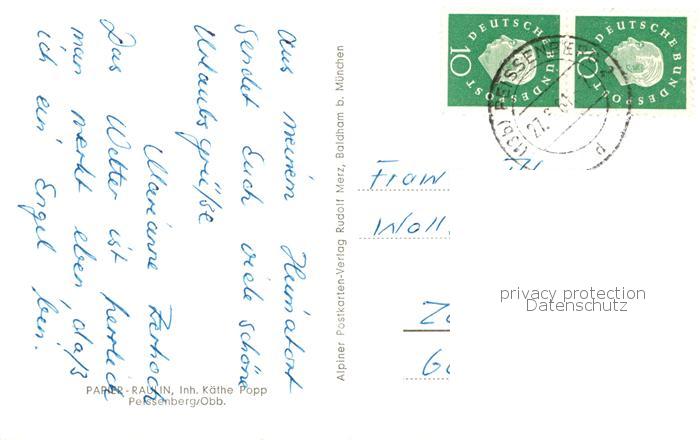 Aus meinem Heimatort
sendet Euch viele schöne
Urlaubsgrüße
Marianne
Das Wetter ist herrlich
man merkt eben, daß
ich ein Engel bin.
PAPIER-RAULIN, Inh. Käthe Popp
Peissenberg/Obb.
Alpiner Postkarten-Verlag Rudolf Merz, Baldham b. München
DEUTSCHE BUNDESPOST
10
DEUTSCHE BUNDESPOST
10
(13b) PEISSENBERG 2
Frau
Woll
privacy protection
Datenschutz